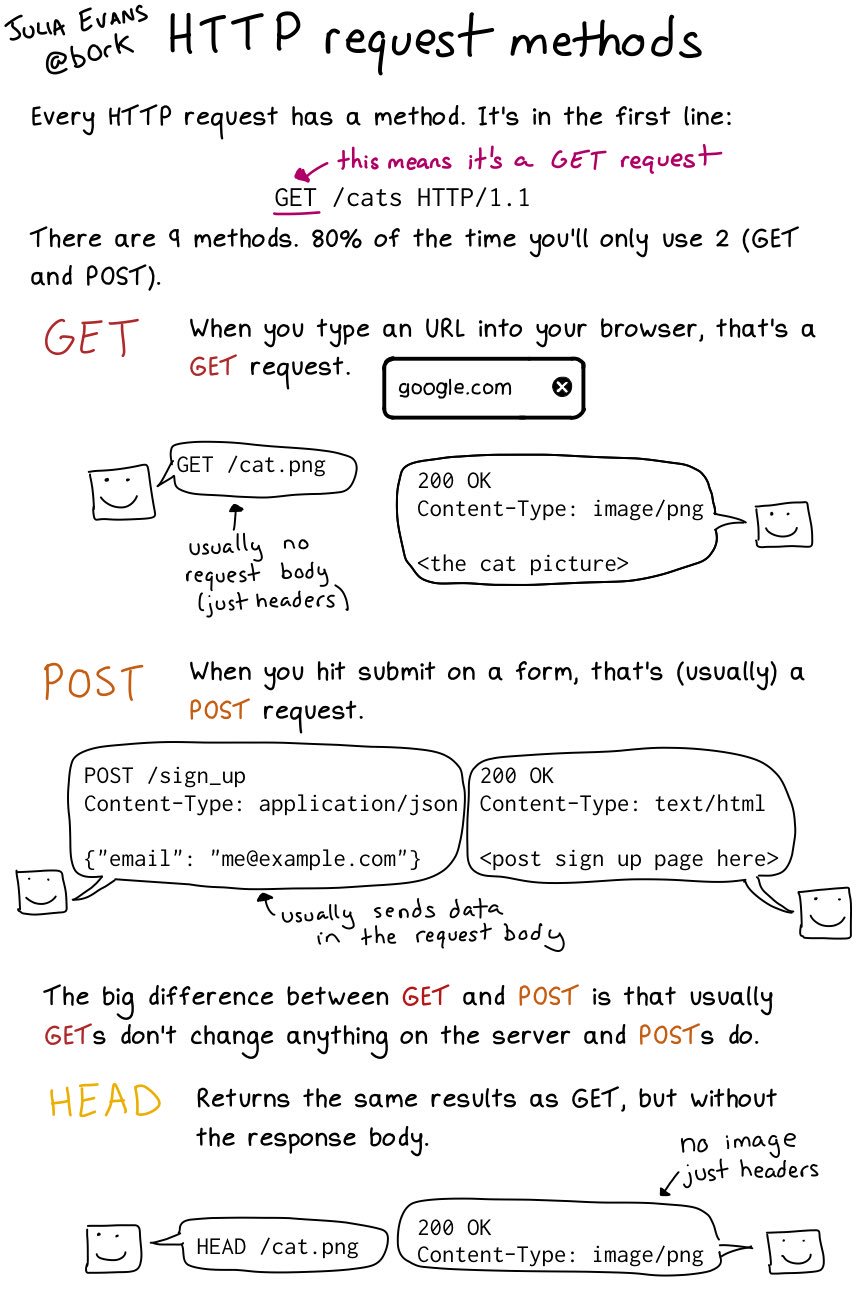 JULIA EVANS
@b0rk
HTTP request methods
Every HTTP request has a method. It's in the first line:
this means it's a GET request
GET /cats HTTP/1.1
There are 9 methods. 80% of the time you'll only use 2 (GET
and POST).
GET
When you type an URL into your browser, that's a
GET request.
google.com
GET /cat.png
usually no
request body
(just headers)
200 OK
Content-Type: image/png
<the cat picture>
POST
When you hit submit on a form, that's (usually) a
POST request.
POST /sign_up
Content-Type: application/json
{"email": "me@example.com"}
usually sends data
in the request body
200 OK
Content-Type: text/html
<post sign up page here>
The big difference between GET and POST is that usually
GETs don't change anything on the server and POSTs do.
HEAD
Returns the same results as GET, but without
the response body.
no image
just headers
HEAD /cat.png
200 OK
Content-Type: image/png